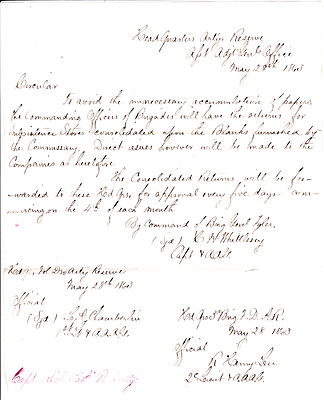 Head Quarters Arty Reserve
Asst Adjt Genls Office
May 28th 1863
Circular
To avoid the unnecessary accumulation of papers
the Commanding Officers of Brigades will have the returns for
Subsistence Stores consolidated upon the Blanks furnished by
the Commissary. Direct issues however will be made to the
Companies as heretofore
The Consolidated Returns will be for-
-warded to these Hd Qrs for approval every five days com-
-mencing on the 4th of each month
By Command of Brig Genl Tyler.
(Sgd) C. H. Whittlesey
Capt & AAG.
Hd Qrs Vol Div Arty Reserve
May 28th 1863
Official
(Sgd) Chamberlin
1st Lt & AAAG.
Hd Qrs Brig D. A. R.
May 28 1863
Official
R. Henry Lee
2d Lieut & AAAG.
Capt